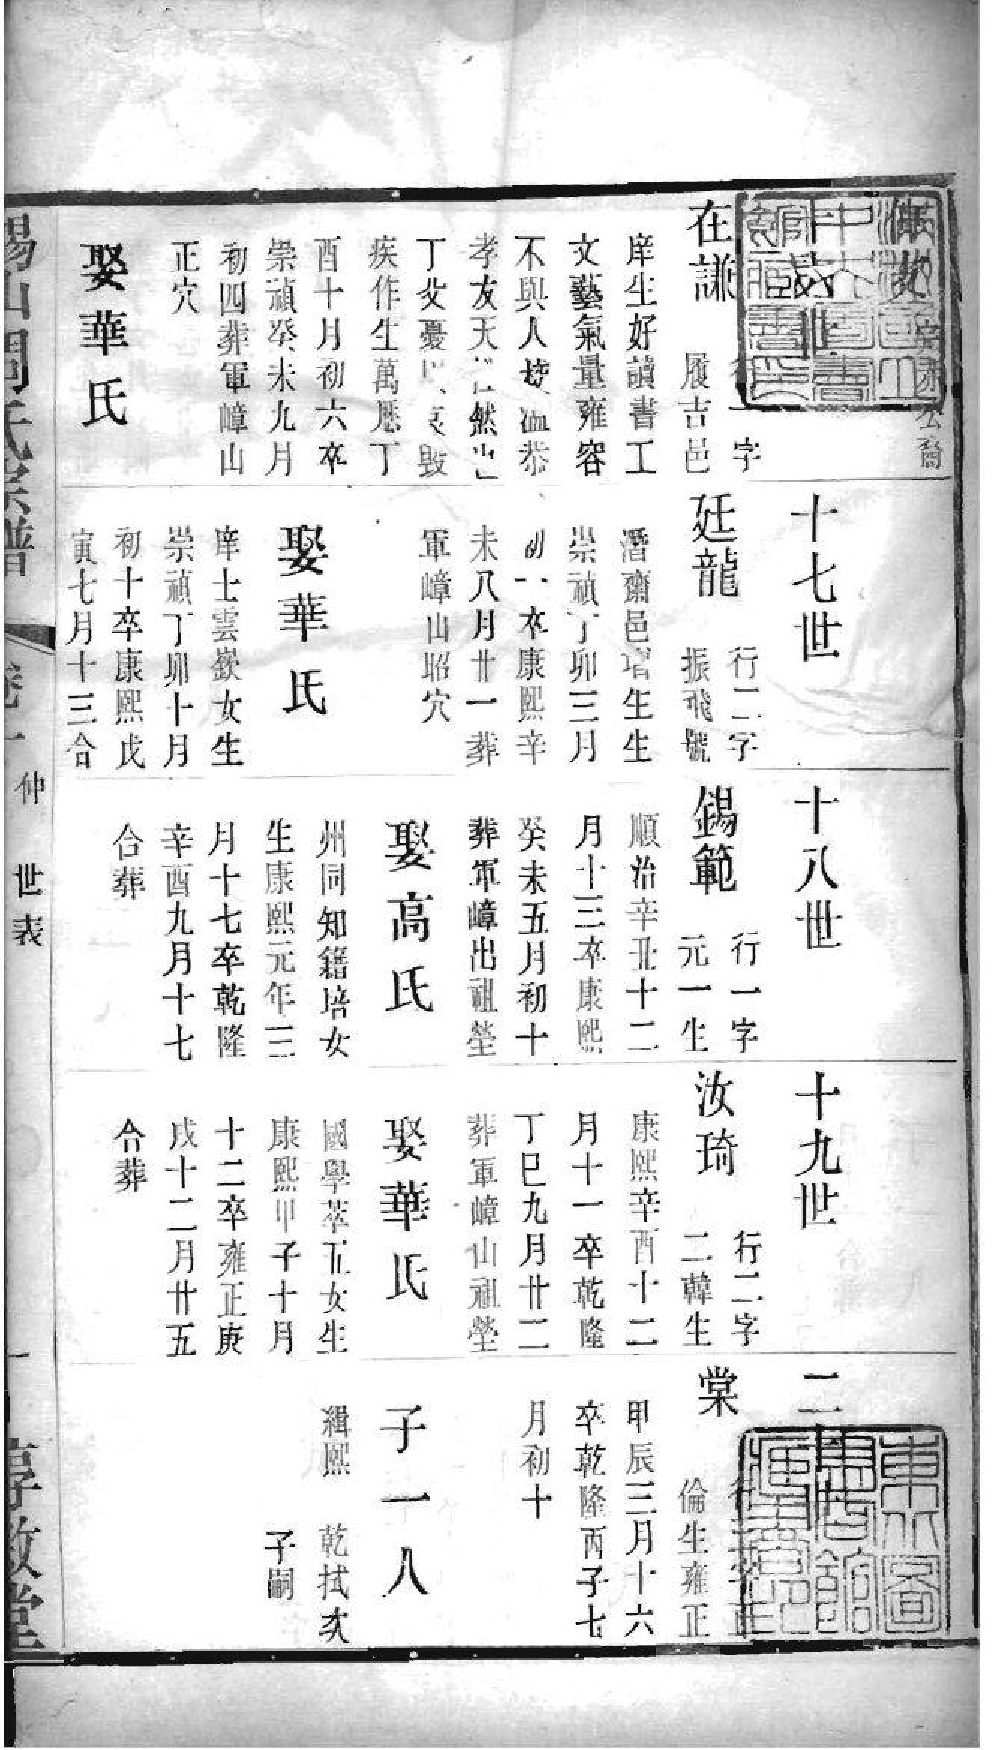 十六世
在謙
行一字
履吉邑
庠生好讀書工
文藝氣量雍容
不與人
孝友天
丁父憂
疾作生萬厯丁
酉十月初六卒
崇禎癸未九月
初四葬軍嶂山
正穴
娶華氏
十七世
廷龍
行二字
振飛號
潛齋邑增生生
崇禎丁卯三月
初八卒康熙辛
未八月廿一葬
軍嶂山昭穴
娶華氏
庠士雲嶔女生
崇禎丁卯十月
初十卒康熙戊
寅七月十三合
十八世
錫範
行一字
元一生
順治辛丑十二
月十三卒康熙
癸未五月初十
葬軍嶂出祖塋
娶高氏
州同知籍培女
生康熙元年三
月十七卒乾隆
辛酉九月十七
合葬
十九世
汝琦
行二字
二韓生
康熙辛酉十二
月十一卒乾隆
丁巳九月廿二
葬軍嶂山祖塋
娶華氏
國學萃五女生
康熙甲子十月
十二卒雍正庚
戌十二月廿五
合葬
二十世
棠
倫生雍正
甲辰三月十六
卒乾隆丙子七
月初十
子一人
緝熙 乾拭次
子嗣
錫山周氏宗譜
卷一
仲 世表
一
享敘堂